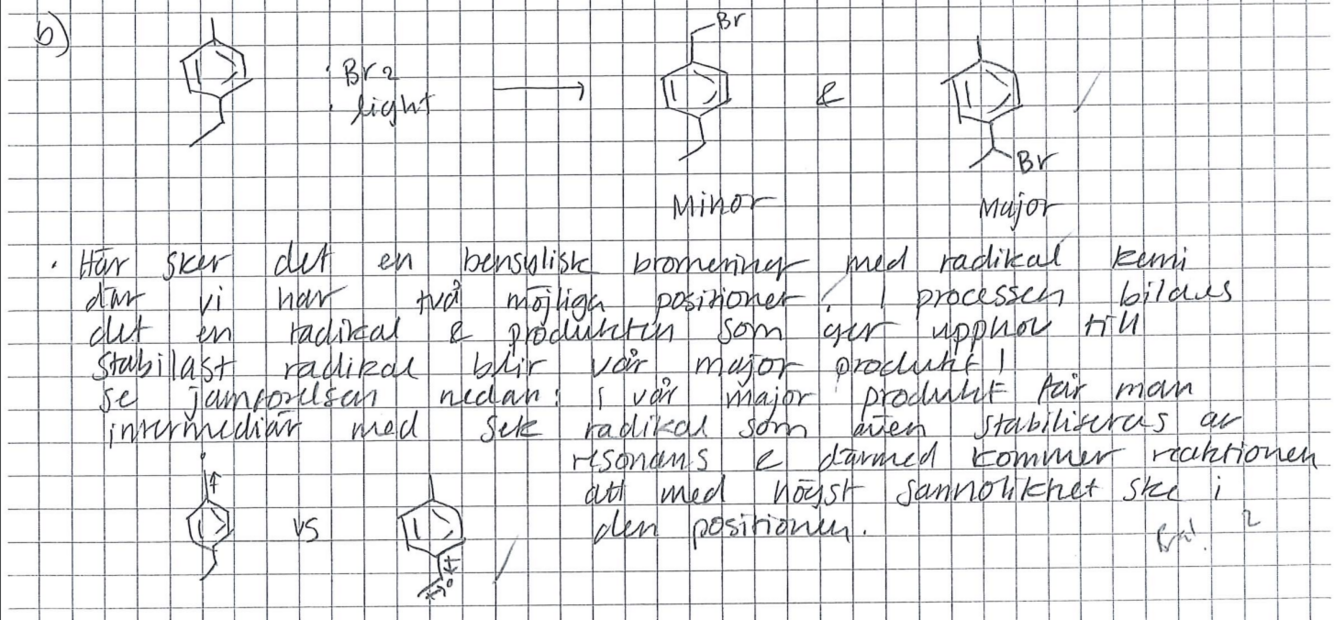 b)
Br
· Br2
· light
&
Br
Minor
Major
· Här sker det en bensylisk bromering med radikal kemi
där vi har två möjliga positioner. I processen bildas
det en radikal & produkten som ger upphov till
stabilast radikal blir vår major produkt!
se jämförelsen nedan: I vår major produkt får man
intermediär med sek radikal som även stabiliseras av
resonans & därmed kommer reaktionen
att med högst sannolikhet ske i
vs
den positionen.
Bra! 2